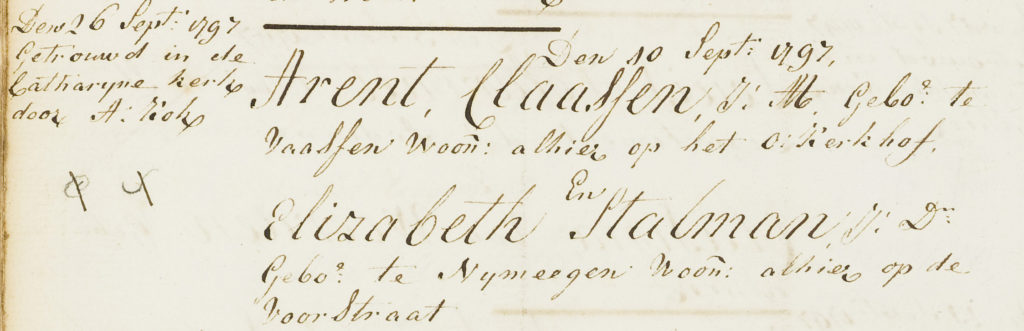 Den 26 Sept: 1797
Getrouwd in de
Catharyne kerk
door A: Kok
Den 10 Sept: 1797.
Arent Claassen, J: M. Gebo: te
Vaassen Woon: alhier op het O: Kerkhof.
En
Elizabeth Stalman, J: Dr
Gebo: te Nymeegen Woon: alhier op de
Voor Straat